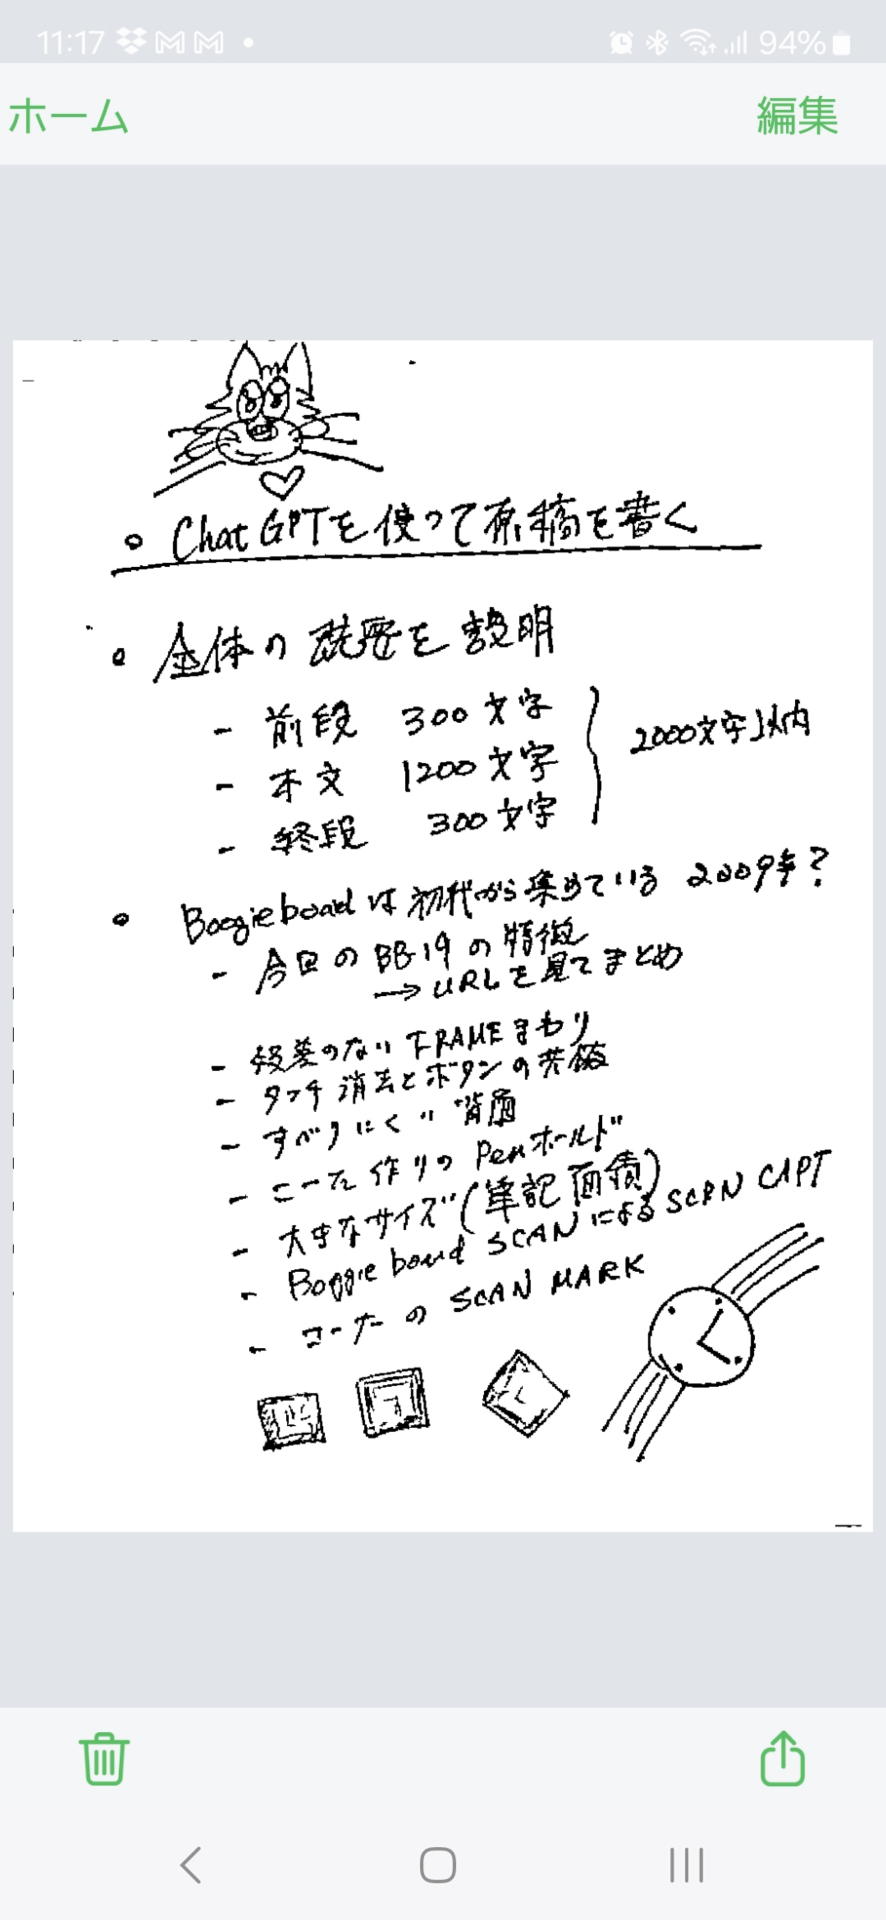 11:17
94%
ホーム
編集
ChatGPTを使って原稿を書く
全体の概要を説明
- 前段 300文字
- 本文 1200文字
- 終段 300文字
2000文字以内
Boogieboardは初代から集めている 2009年?
- 今回のBB-19の特徴
→URLを見てまとめ
- 段差のないFRAMEまわり
- タッチ消去とボタンの共
- すべりにくい背面
- こった作りのPenホールド
- 大きなサイズ(筆記面積)
- Boggie board SCANによるSCAN CAPT
- コーナーのSCAN MARK